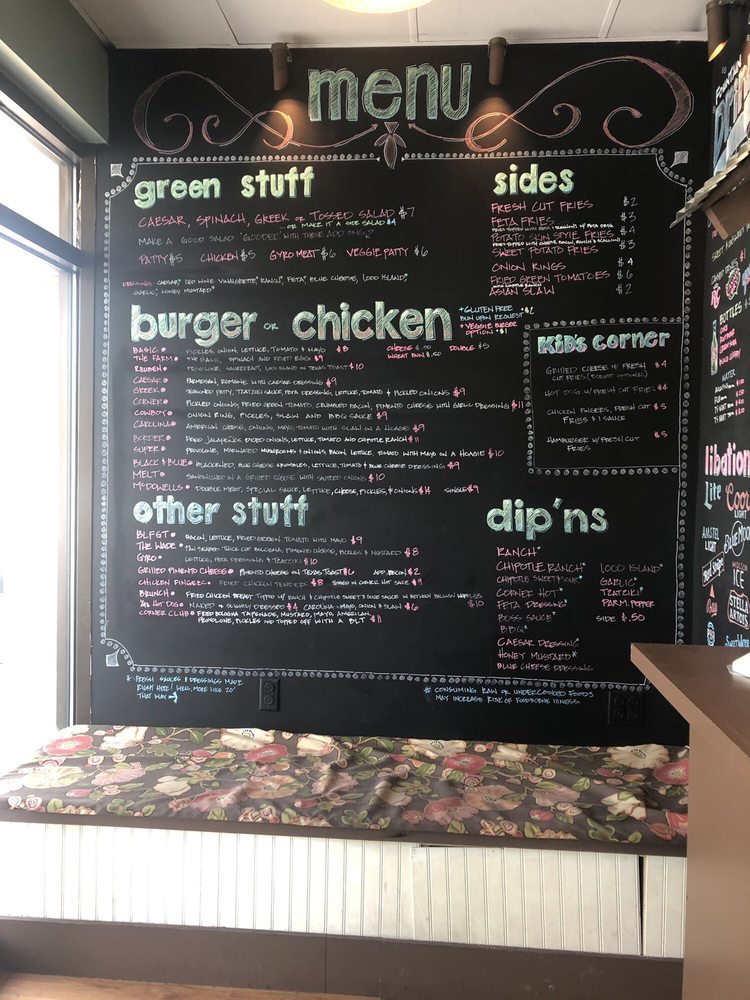 menu
green stuff
CAESAR, SPINACH, GREEK or TOSSED SALAD $7
...OR MAKE IT A SIDE SALAD $4
MAKE A GOOD SALAD "GOODER" WITH THESE ADD ONS?
PATTY $5 CHICKEN $5 GYRO MEAT $6 VEGGIE PATTY $6
DRESSINGS: CAESAR*, RED WINE VINAIGRETTE*, RANCH*, FETA*, BLUE CHEESE, 1,000 ISLAND*,
GARLIC*, HONEY MUSTARD*
sides
FRESH CUT FRIES $2
FETA FRIES $3
POTATO SKIN STYLE FRIES $4
SWEET POTATO FRIES $3
ONION RINGS $4
FRIED GREEN TOMATOES $6
ASIAN SLAW $2
burger or chicken
+GLUTEN FREE BUN UPON REQUEST +$2
+VEGGIE BURGER OPTION +$1
BASIC • PICKLES, ONION, LETTUCE, TOMATO & MAYO $8 CHEESE $.50 DOUBLE $5
THE FARM • SPINACH AND FRIED EGG $9 WHEAT BUN $.50
REUBEN • PROVOLONE, SAUERKRAUT, 1,000 ISLAND ON TEXAS TOAST $10
CAESAR • PARMESAN, ROMAINE WITH CAESAR DRESSING $9
GREEK • SEASONED PATTY, TZATZIKI SAUCE, FETA DRESSING, LETTUCE, TOMATO & PICKLED ONIONS $9
CORNER • PICKLED ONIONS, FRIED GREEN TOMATO, CRUMBLED BACON, PIMENTO CHEESE WITH GARLIC DRESSING $11
COWBOY • ONION RING, PICKLES, SLAW AND BBQ SAUCE $9
CAROLINA • AMERICAN CHEESE, ONIONS, MAYO, TOMATO WITH SLAW ON A HOAGIE $9
BORDER • FRIED JALAPEÑOS, DICED ONIONS, LETTUCE, TOMATO AND CHIPOTLE RANCH $11
SUPER • PROVOLONE, MARINATED MUSHROOMS & ONIONS, BACON, LETTUCE, TOMATO WITH MAYO ON A HOAGIE $10
BLACK & BLUE • BLACKENED, BLUE CHEESE CRUMBLES, LETTUCE, TOMATO & BLUE CHEESE DRESSING $9
MELT • SANDWICHED IN A GRILLED CHEESE WITH SAUTEED ONIONS $10
McDOWELLS • DOUBLE MEAT, SPECIAL SAUCE, LETTUCE, CHEESE, PICKLES, & ONIONS $14 SINGLE $9
KID'S CORNER
GRILLED CHEESE W/ FRESH CUT FRIES $4
HOT DOG W/ FRESH CUT FRIES $4
CHICKEN FINGERS, FRESH CUT FRIES & 1 SAUCE $5
HAMBURGER W/ FRESH CUT FRIES $5
other stuff
BLFGT • BACON, LETTUCE, FRIED GREEN TOMATO WITH MAYO $9
THE WADE • THICK CUT BOLOGNA, PIMENTO CHEESE, PICKLES & MUSTARD $8
GYRO • LETTUCE, FETA DRESSING & TZATZIKI $10
GRILLED PIMENTO CHEESE • PIMENTO CHEESE ON TEXAS TOAST $6 ADD BACON $2
CHICKEN FINGERS • FRIED CHICKEN TENDERS $8 TOSSED IN CORNER HOT SAUCE $9
BRUNCH • FRIED CHICKEN BREAST TOPPED W/ RANCH & CHIPOTLE SWEET & SOUR SAUCE IN BETWEEN BELGIAN WAFFLES $10
THE HOT DOG • NAKED & SLIGHTLY DRESSED $4 CAROLINA - MAYO, ONION & SLAW $6
CORNER CLUB • FRIED BOLOGNA, TAPENADE, MUSTARD, MAYO, AMERICAN,
PROVOLONE, PICKLES AND TOPPED OFF WITH A BLT $11
dip'ns
RANCH*
CHIPOTLE RANCH* 1,000 ISLAND*
CHIPOTLE SWEET & SOUR* GARLIC*
CORNER HOT* TZATZIKI*
FETA DRESSING* PARM. PEPPER
BOSS SAUCE* SIDE $.50
BBQ*
CAESAR DRESSING*
HONEY MUSTARD*
BLUE CHEESE DRESSING
* FRESH SAUCES & DRESSINGS MADE
RIGHT HERE! WELL, MORE LIKE 20'
THAT WAY
* CONSUMING RAW OR UNDERCOOKED FOODS
MAY INCREASE RISK OF FOODBORNE ILLNESS.
FOUNTAIN
BOTTLES
WATER
libation
Lite
Coors
LIGHT
AMSTEL
LIGHT
BLUE MOON
ICE
STELLA
ARTOIS